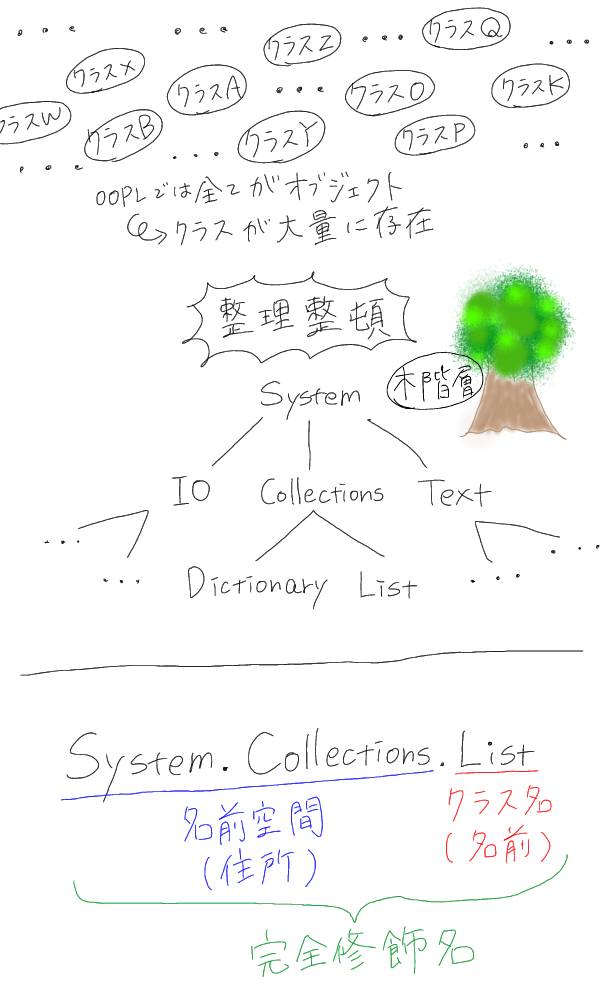 ... ... クラスZ ... クラスQ ...
クラスX クラスA ... クラスO クラスK
クラスW クラスB ... クラスY クラスP ...
...
OOPLでは全てがオブジェクト
クラスが大量に存在
整理整頓
System 木階層
IO Collections Text
... ...
... Dictionary List ...
System.Collections.List
名前空間 クラス名
(住所) (名前)
完全修飾名